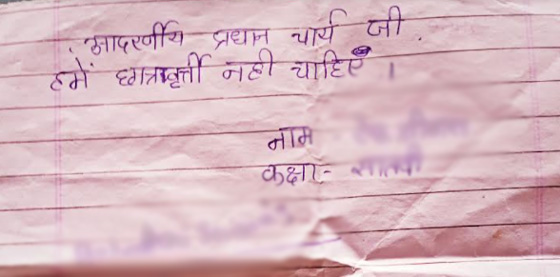 आदरणीय प्रधान चार्य जी .
हमें छात्रवृत्ती नही चाहिए ।
नाम
कक्षा -